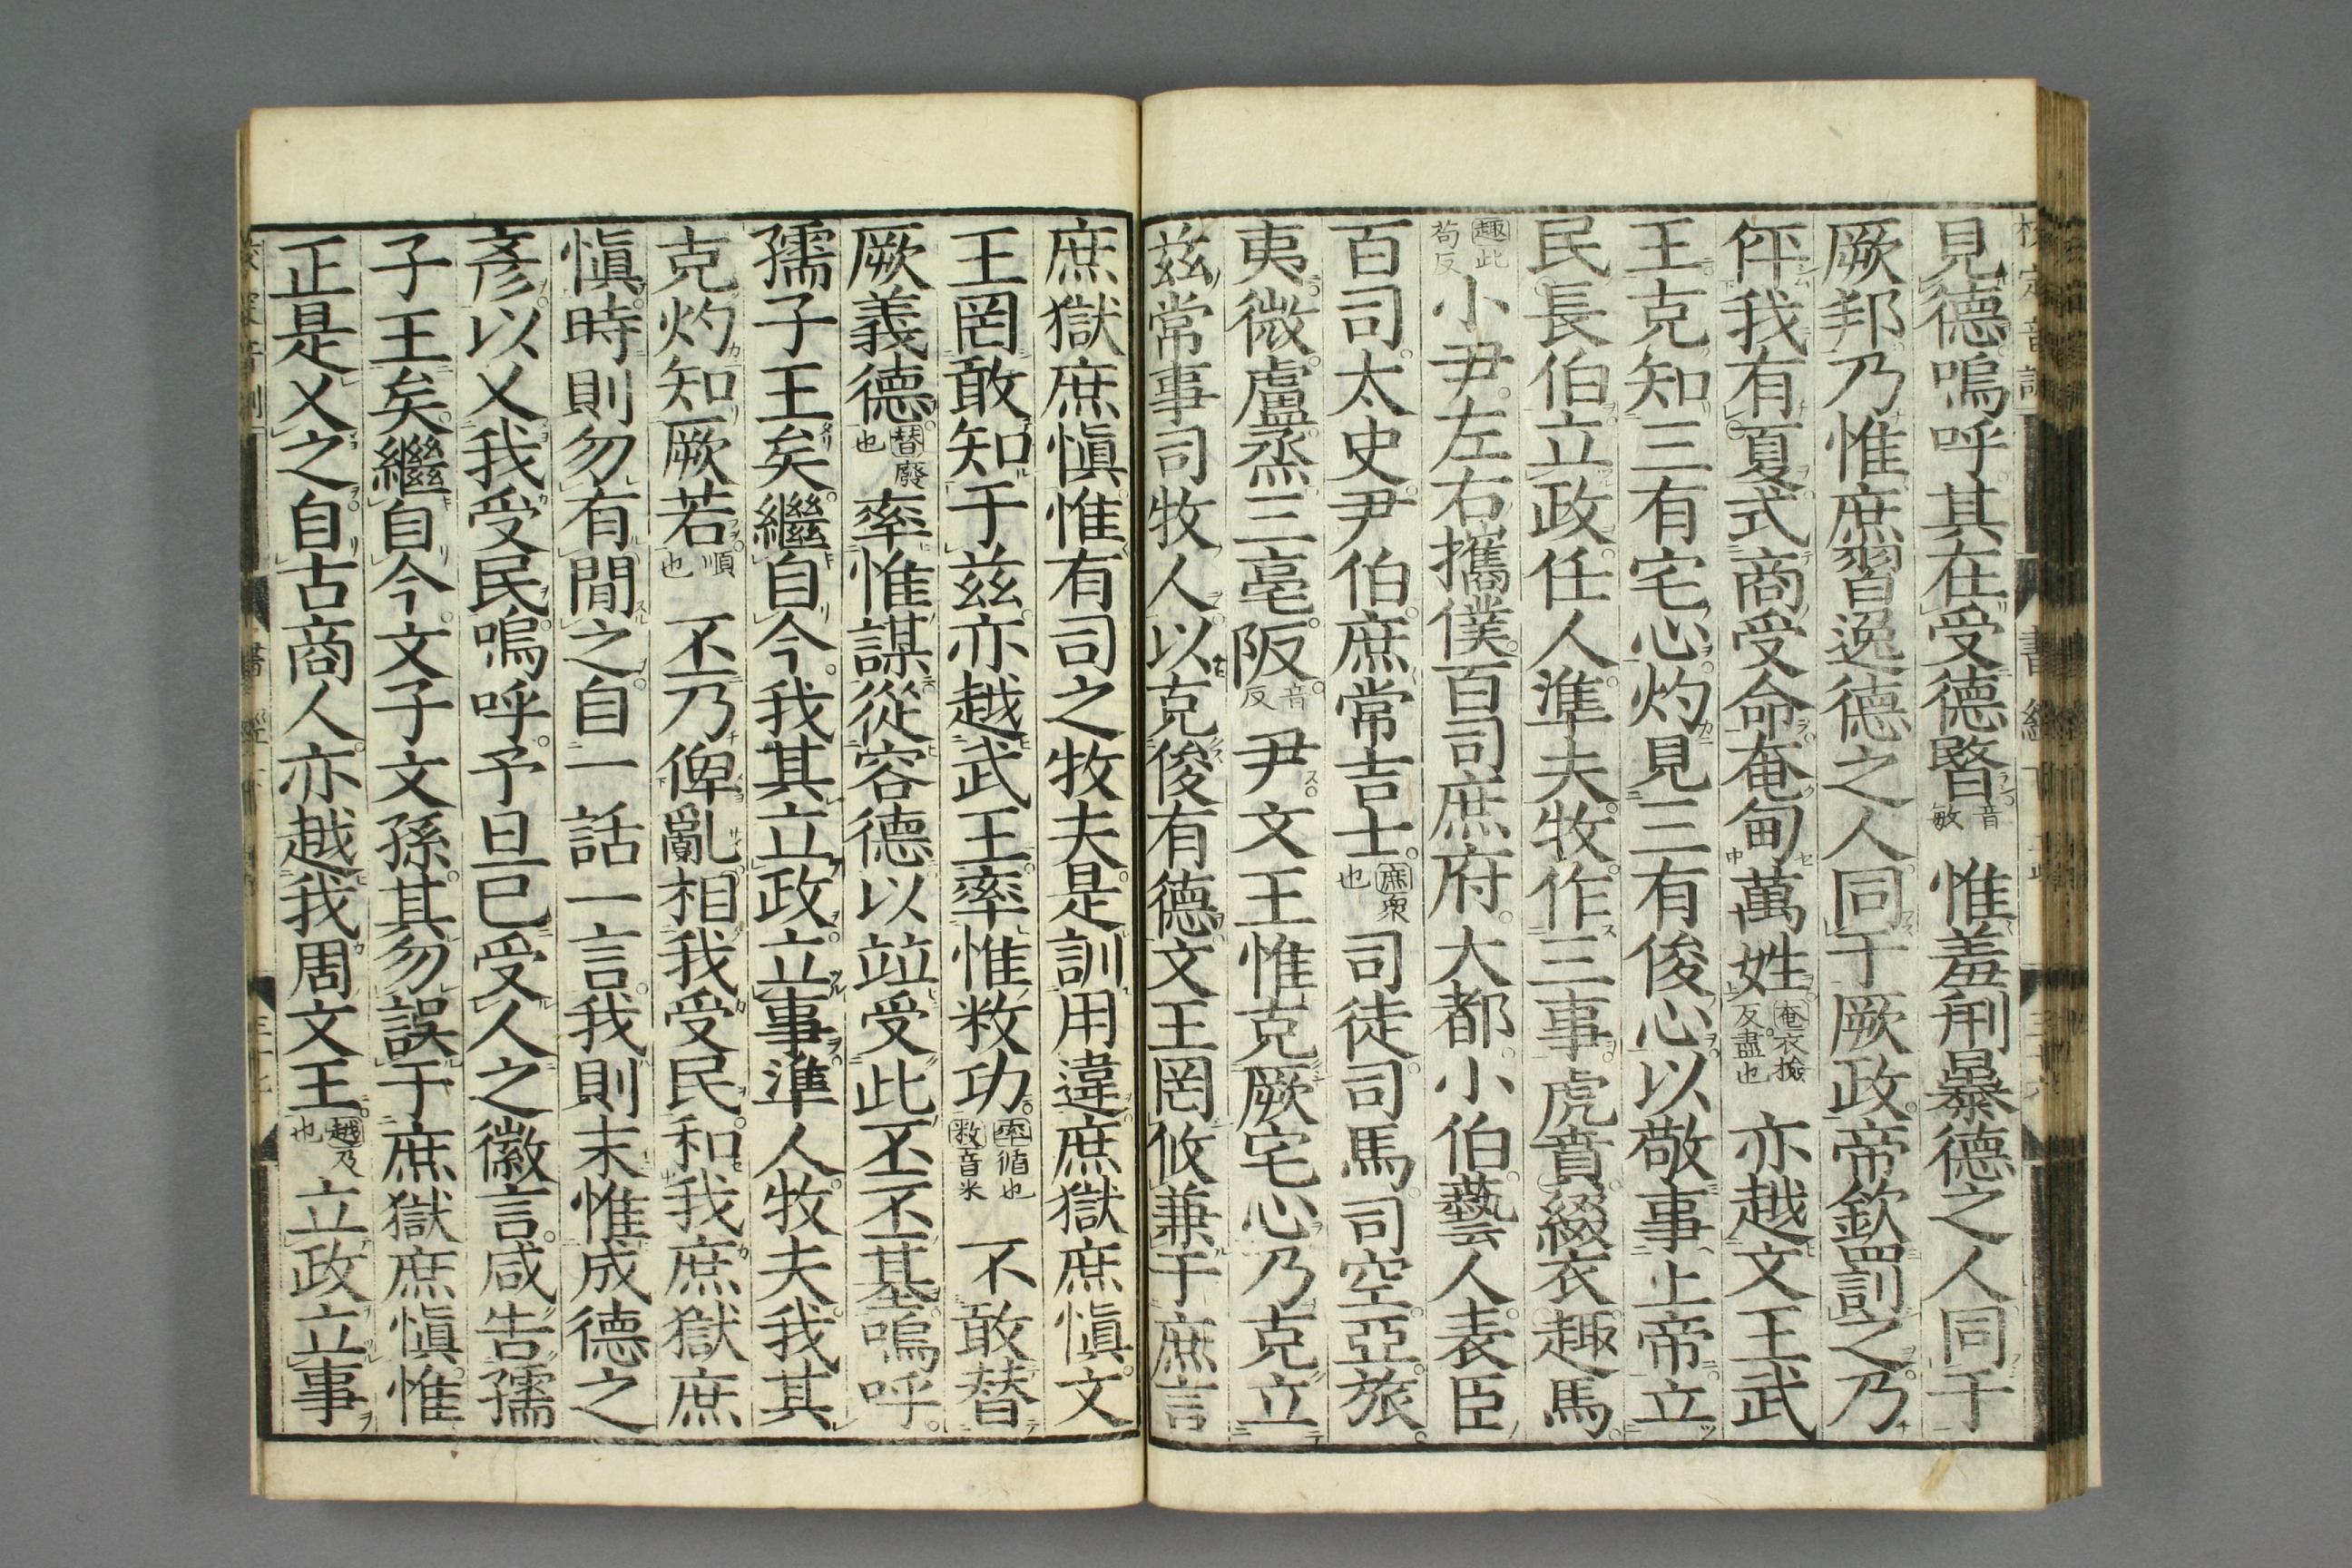 見德嗚呼其在受德暋音敏惟羞刑暴德之人同于
厥邦乃惟庶習逸德之人同于厥政帝欽罰之乃
伻我有夏式商受命奄甸萬姓奄衣檢反盡也亦越文王武
王克知三有宅心灼見三有俊心以敬事上帝立
民長伯立政任人準夫牧作三事虎賁綴衣趣馬
趣此苟反小尹左右攜僕百司庶府大都小伯藝人表臣
百司太史尹伯庶常吉士庶衆也司徒司馬司空亞旅
夷微盧烝三亳阪音反尹文王惟克厥宅心乃克立
茲常事司牧人以克俊有德文王罔攸兼于庶言
庶獄庶愼惟有司之牧夫是訓用違庶獄庶愼文
王罔敢知于茲亦越武王率惟敉功率循也敉音米不敢替
厥義德替廢也率惟謀從容德以竝受此丕丕基嗚呼
孺子王矣繼自今我其立政立事準人牧夫我其
克灼知厥若順也丕乃俾亂相我受民和我庶獄庶
愼時則勿有間之自一話一言我則末惟成德之
彥以乂我受民嗚呼予旦已受人之徽言咸告孺
子王矣繼自今文子文孫其勿誤于庶獄庶愼惟
正是乂之自古商人亦越我周文王越乃也立政立事